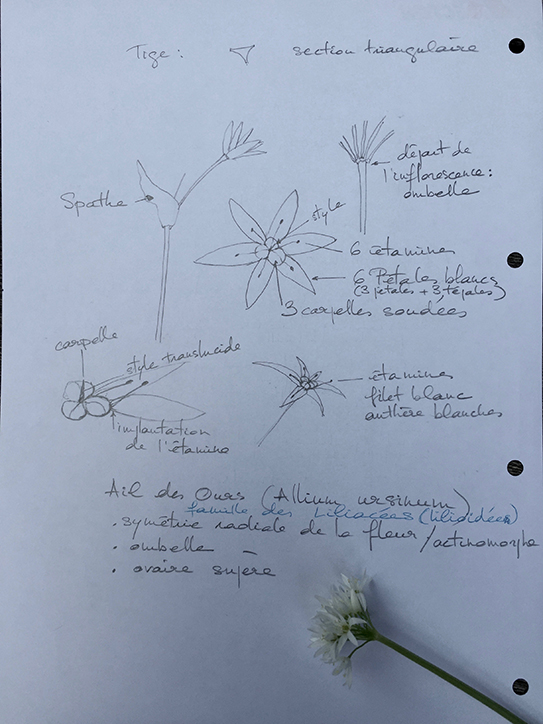 Tige : section triangulaire
départ de
l'inflorescence :
ombelle
Spathe
style
6 étamines
6 Pétales blancs
(3 pétales + 3 tépales)
3 carpelles soudées
carpelle
style translucide
implantation
de l'étamine
étamines
filet blanc
anthère blanches
Ail des Ours (Allium ursinum)
famille des Liliacées (liliidées)
. symétrie radiale de la fleur / actinomorphe
. ombelle
. ovaire supère